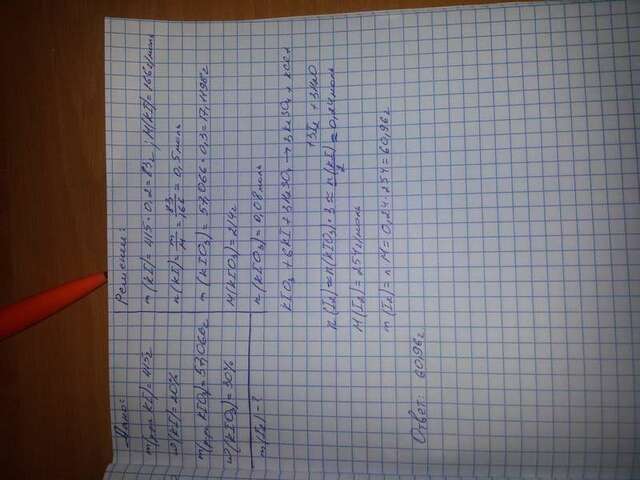 Дано:
m(р-ра KI)=415г
w(KI)=20%
m(р-ра KIO3)=57,066г
w(KIO3)=30%
m(I2)-?
Решение:
m(KI)=415·0,2=83г; M(KI)=166г/моль
n(KI)=m/M=83/166=0,5моль
m(KIO3)=57,066·0,3=17,1198г
M(KIO3)=214г
n(KIO3)=0,08моль
KIO3+6KI+3H2SO4→3K2SO4+KCl+
+3I2+3H2O
n(I2)≈n(KIO3)·3≈n(KI)/2≈0,24моль
M(I2)=254г/моль
m(I2)=n·M=0,24·254=60,96г
Ответ: 60,96г